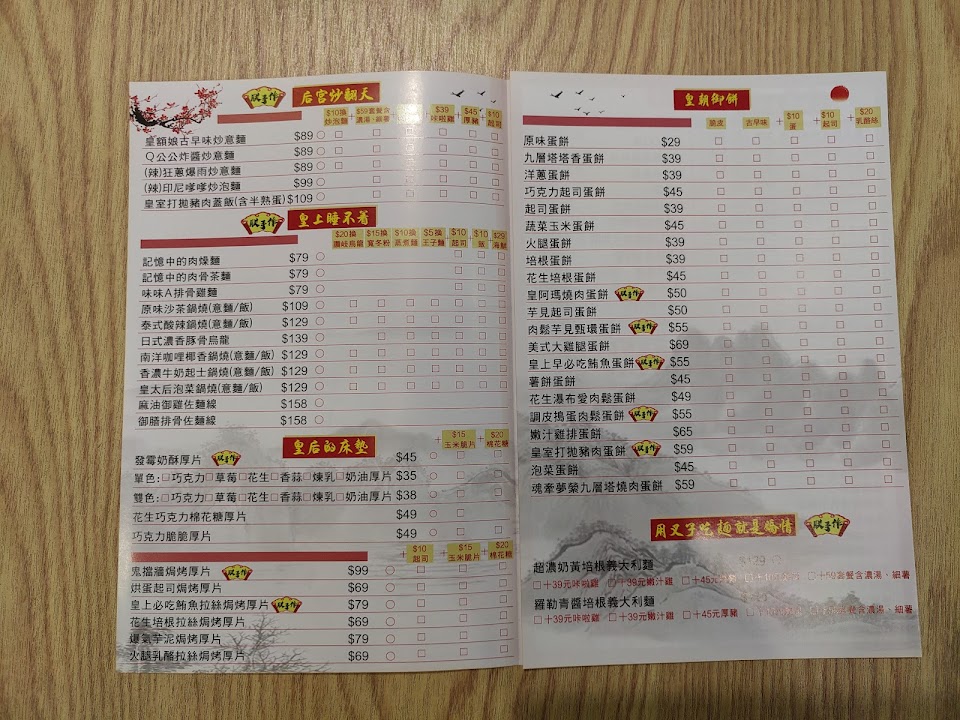 朕手作 后宮炒翻天
$10換 炒泡麵 $59套餐含 濃湯、細薯 +$39 咔啦雞 +$45 厚豬 +$10 起司
皇額娘古早味炒意麵 $89
Q公公炸醬炒意麵 $89
(辣)狂蔥爆雨炒意麵 $89
(辣)印尼嗲嗲炒泡麵 $99
皇室打拋豬肉蓋飯(含半熟蛋) $109
朕手作 皇上睡不著
$20換 讚岐烏龍 $15換 寬冬粉 $10換 蒸煮麵 $5換 王子麵 $10 起司 $10 飯 $29 海鮮
記憶中的肉燥麵 $79
記憶中的肉骨茶麵 $79
味味A排骨雞麵 $79
原味沙茶鍋燒(意麵/飯) $109
泰式酸辣鍋燒(意麵/飯) $129
日式濃香豚骨烏龍 $139
南洋咖哩椰香鍋燒(意麵/飯) $129
香濃牛奶起士鍋燒(意麵/飯) $129
皇太后泡菜鍋燒(意麵/飯) $129
麻油御雞佐麵線 $158
御膳排骨佐麵線 $158
皇后的床墊
+$15 玉米脆片 +$20 棉花糖
發霉奶酥厚片 朕手作 $45
單色:□巧克力□草莓□花生□香蒜□煉乳□奶油厚片 $35
雙色:□巧克力□草莓□花生□香蒜□煉乳□奶油厚片 $38
花生巧克力棉花糖厚片 $49
巧克力脆脆厚片 $49
+$10 起司 +$15 玉米脆片 +$20 棉花糖
鬼擋牆焗烤厚片 朕手作 $99
烘蛋起司焗烤厚片 $69
皇上必吃鮪魚拉絲焗烤厚片 朕手作 $79
花生培根拉絲焗烤厚片 $69
爆氣芋泥焗烤厚片 $79
火腿乳酪拉絲焗烤厚片 $69
皇朝御餅
脆皮 古早味 +$10 蛋 +$10 起司 +$20 乳酪絲
原味蛋餅 $29
九層塔塔香蛋餅 $39
洋蔥蛋餅 $39
巧克力起司蛋餅 $45
起司蛋餅 $39
蔬菜玉米蛋餅 $45
火腿蛋餅 $39
培根蛋餅 $39
花生培根蛋餅 $45
皇阿瑪燒肉蛋餅 朕手作 $50
芋見起司蛋餅 $50
肉鬆芋見甄環蛋餅 朕手作 $55
美式大雞腿蛋餅 $69
皇上早必吃鮪魚蛋餅 朕手作 $55
薯餅蛋餅 $45
花生瀑布愛肉鬆蛋餅 $49
調皮搗蛋肉鬆蛋餅 朕手作 $55
嫩汁雞排蛋餅 $65
皇室打拋豬肉蛋餅 朕手作 $59
泡菜蛋餅 $45
魂牽夢縈九層塔燒肉蛋餅 $59
用叉子吃麵就是矯情 朕手作
超濃奶黃培根義大利麵 $129
□+39元咔啦雞 □+39元嫩汁雞 □+45元厚豬 □+59套餐含濃湯、細薯
羅勒青醬培根義大利麵
□+39元咔啦雞 □+39元嫩汁雞 □+45元厚豬 套餐含濃湯、細薯